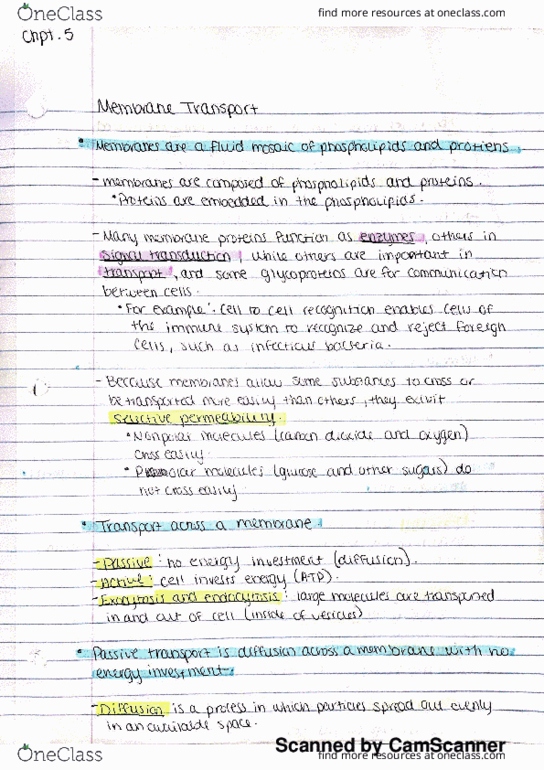 OneClass
find more resources at oneclass.com
Chpt. 5
Membrane Transport
• Membranes are a fluid mosaic of phospholipids and protiens.
- membranes are composed of phospholipids and proteins.
• Proteins are embedded in the phospholipids.
- Many membrane proteins function as enzymes, others in
signal transduction, while others are important in
transport, and some glycoproteins are for communication
between cells.
• For example: cell to cell recognition enables cells of
the immune system to recognize and reject foreign
cells, such as infectious bacteria.
- Because membranes allow some substances to cross or
be transported more easily than others, they exivit
selective permeability.
• Nonpolar molecules (carbon dioxide and oxygen)
cross easily.
• Polar molecules (glucose and other sugars) do
not cross easily
• Transport across a membrane
- Passive: no energy investment (diffusion).
- Active: cell invests energy (ATP).
- Exocytosis and endocytosis: large molecules are transported
in and out of cell (inside of vesicles)
• Passive transport is diffusion across a membrane with no
energy investment.
- Diffusion is a process in which particles spread out evenly
in an available space.
Scanned by CamScanner
OneClass
find more resources at oneclass.com